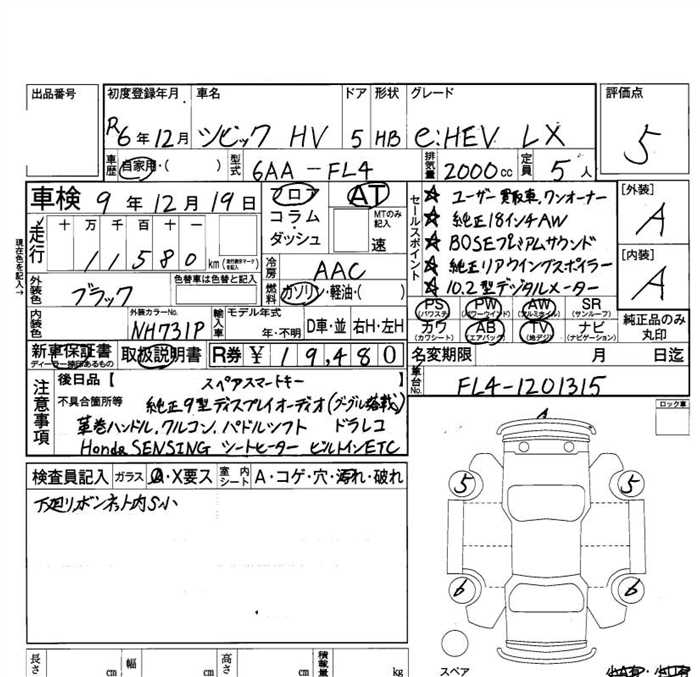 出品番号 初度登録年月 車名 ドア 形状 グレード 評価点
R6年12月 シビック HV 5 HB e:HEV LX 5
車歴 自家用・( ) 型式 6AA-FL4 排気量 2000cc 定員 5人
車検 9年12月19日 フロア コラム・ダッシュ AT MTのみ記入 速
走行 十 万 千 百 十 一
11580 km
現在色を記入→
冷房 AAC
燃料 ガソリン・軽油・( )
外装色 ブラック 色替車は色替と記入
内装色 外装カラーNo. NH731P 輸入車 モデル年式 年・不明 D車・並 右H・左H
セールスポイント
☆ ユーザー買取車、ワンオーナー
☆ 純正18インチAW
☆ BOSEプレミアムサウンド
☆ 純正リアウイングスポイラー
☆ 10.2型デジタルメーター
[外装] A
[内装] A
PS (パワステ) PW (パワーウインド) AW (アルミホイル) SR (サンルーフ)
カワ (カワシート) AB (エアバック) TV (地デジ) ナビ (ナビゲーション)
純正品のみ丸印
新車保証書 ディーラー捺印あるもの 取扱説明書 R券 ¥ 19,480
名変期限 月 日迄
車台No. FL4-1201315
注意事項
後日品【 スペアスマートキー 】
不具合箇所等 純正9型ディスプレイオーディオ(グーグル搭載)
革巻ハンドル、クルコン、パドルシフト ドラレコ
Honda SENSING シートヒーター ビルトインETC
ロック車
検査員記入 ガラス A・X要ス 室内シート A・コゲ・穴・汚れ・破れ
下廻リボンネット内S小
A
5 5
6 6
スペア
長さ cm 幅 cm 高さ cm 積載量 kg